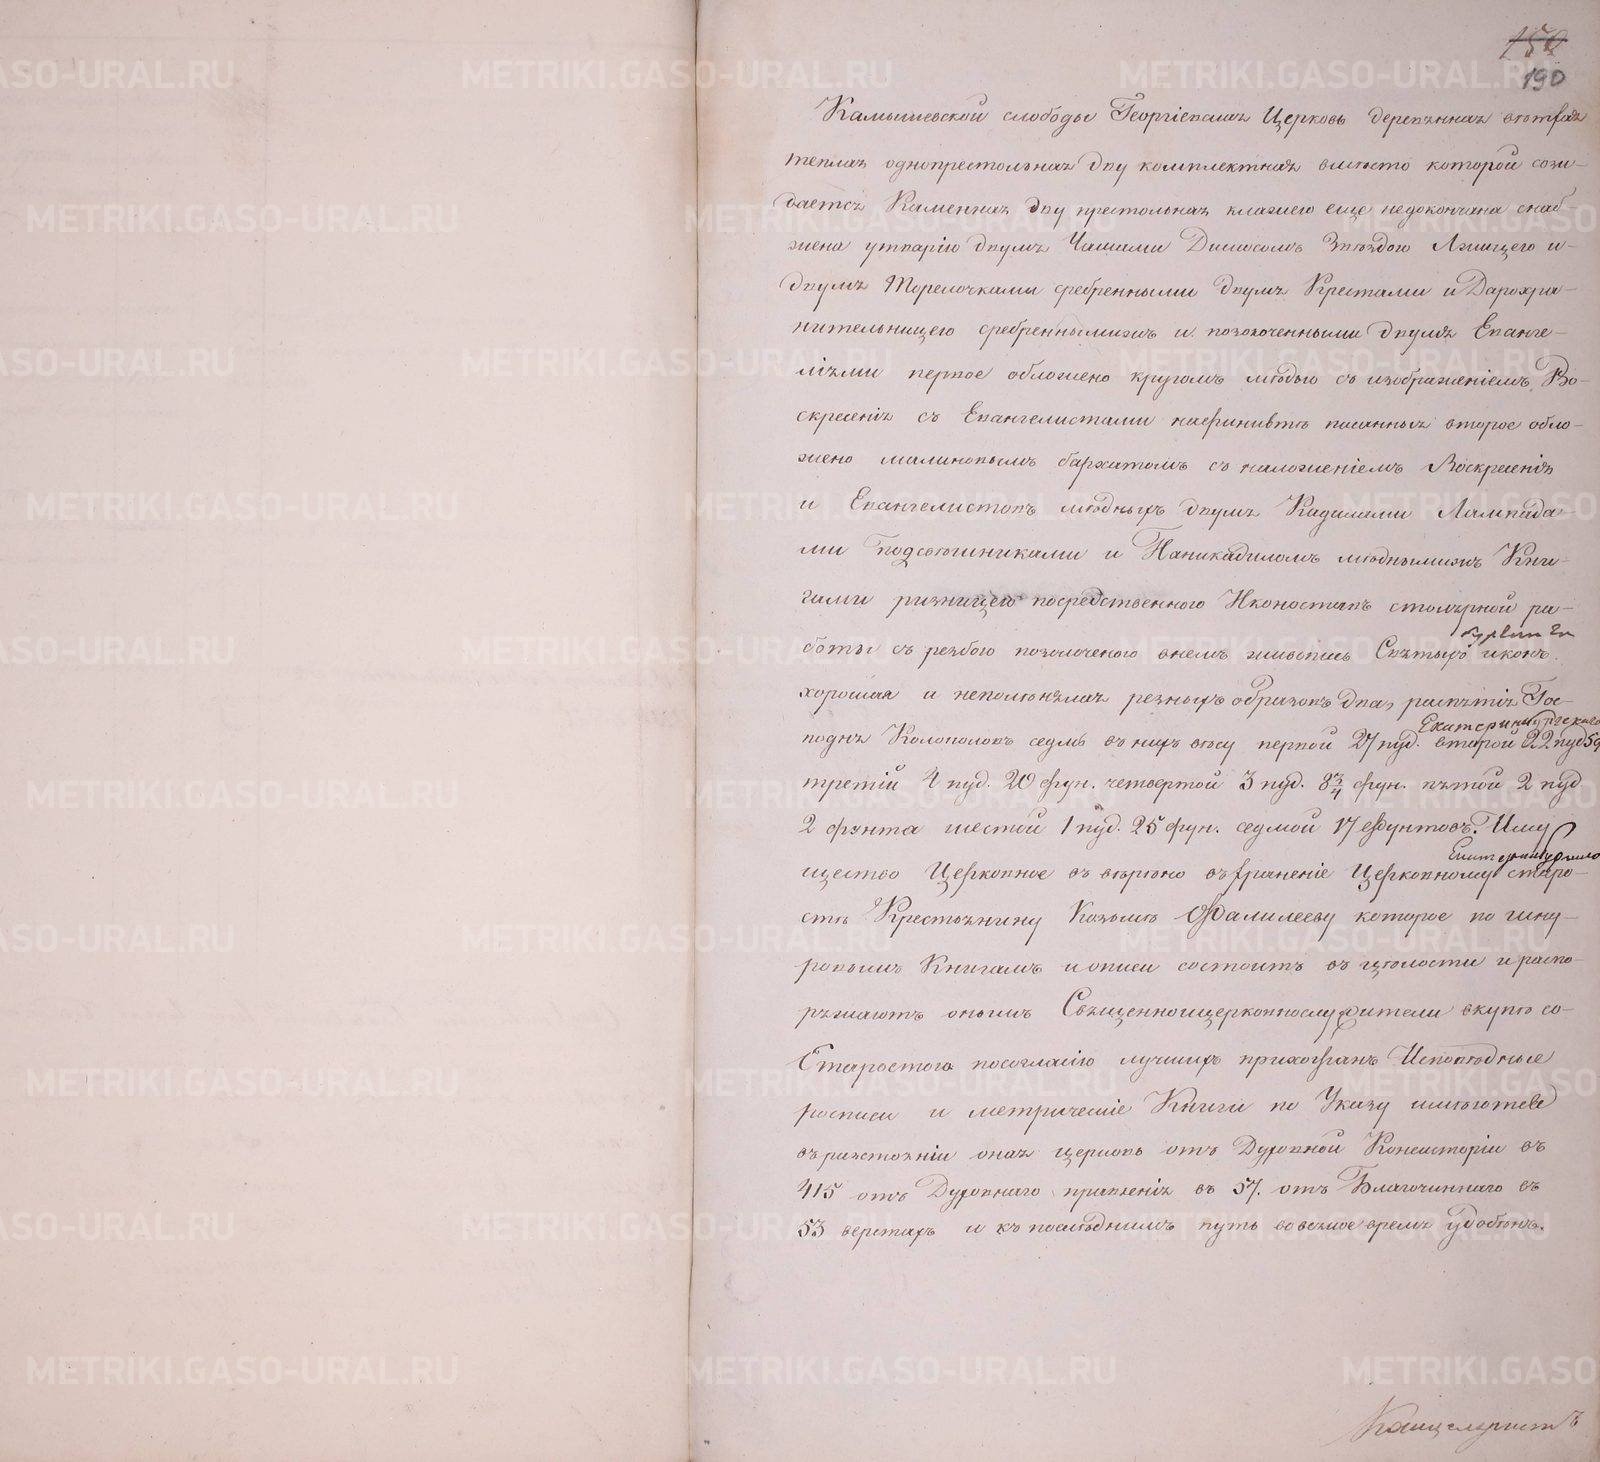 150
190
Камышевской слободы Георгіевская Церковь деревянная ветхая
теплая однопрестольная дву комплектная вместо которой сози-
дается Каменная дву престольная кладкою еще недокончана снаб-
жена утварію двумя Чашами Дискосомъ Звѣздою Лжицею и-
двумя Торелочками сребренными двумя Крестами и Дарохра-
нительницею сребреннымижъ и позолоченными двумя Еванге-
ліями первое обложено кругомъ мѣдью съ изображеніемъ Во-
скресенія съ Евангелистами нафинивтѣ писанныя второе обло-
жено малиновымъ бархатомъ съ наложеніемъ Воскресенія
и Евангелистовъ мѣдныхъ двумя Кадилами Лампада-
ми Подсвѣшниками и Паникадиломъ мѣднымижъ Кни-
гами ризницею посредственного Иконостасъ столярной ра-
боты съ резбою позолоченого внемъ живопись Святыхъ иконъ
хорошая и неполинялая резныхъ образовъ два, распятія Гос-
Екатеринбургскаго
подня Колоколовъ седмь въ нихъ вѣсу первой 27 пуд. второй 22 пуд 5ф
третій 4 пуд. 20 фун. четвертой 3 пуд. 8 3/4 фун. пятой 2 пуд.
2 фунта шестой 1 пуд. 25 фун. седмой 17 фунтовъ. Иму
щество Церковное въ вѣрѣно въ храненіе Церковному старо-
стѣ Крестьянину Козьмѣ Фалилееву которое по шну-
ровымъ Книгамъ и описи состоитъ въ цѣлости и распо-
ряжаютъ онымъ Священноицерковнослужители вкупѣ со-
Старостою посогласію лучшихъ прихожанъ Исповѣдные
росписи и метрическіе Книги по Указу имѣютсе
въ разстояніи оная церковь отъ Духовной Консисторіи въ
415 отъ Духовнаго правленія въ 57. отъ Благочиннаго въ
53 верстахъ и къ последнимъ путь во всякое время удобенъ.
Канцеляристъ
METRIKI.GASO-URAL.RU